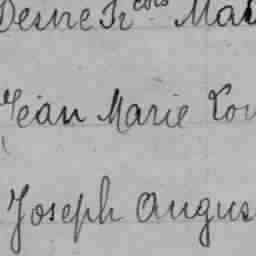 Desire Fr cois Mar
Jean Marie Lou
Joseph Augus